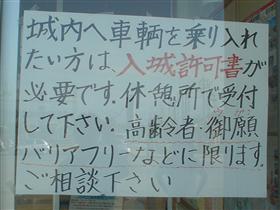 城内へ車輌を乗り入れ
たい方は、入城許可書が
必要です。休憩所で受付
して下さい。高齢者・御願
バリアフリーなどに限ります。
ご相談下さい